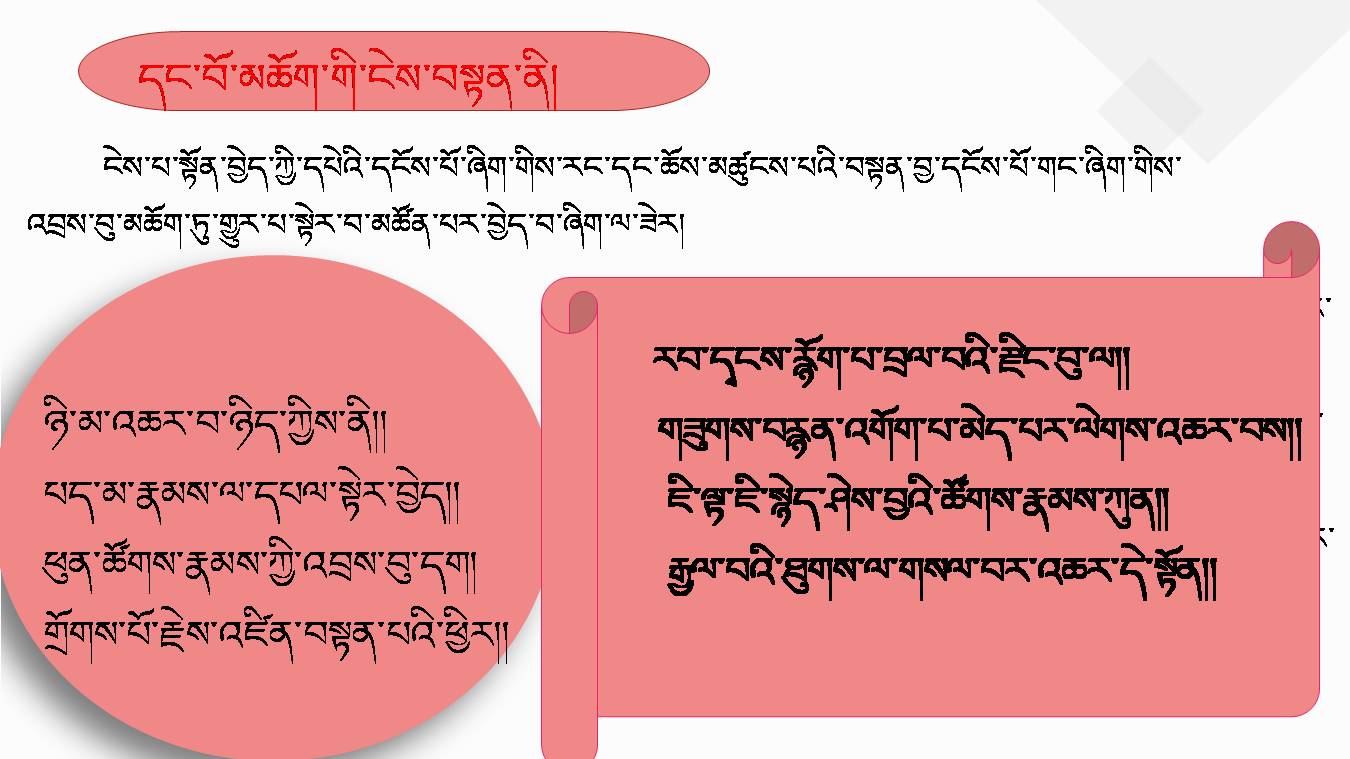 དང་པོ་མཆོག་གི་ངེས་བསྟན་ནི།
ངེས་པ་སྟོན་བྱེད་ཀྱི་དཔེའི་དངོས་པོ་ཞིག་གིས་རང་དང་ཆོས་མཚུངས་པའི་བསྟན་བྱ་དངོས་པོ་གང་ཞིག་གིས་
འབྲས་བུ་མཆོག་ཏུ་གྱུར་པ་སྟེར་བ་མཚོན་པར་བྱེད་པ་ཞིག་ལ་ཟེར།
ཉི་མ་འཆར་བ་ཉིད་ཀྱིས་ནི།།
པད་མ་རྣམས་ལ་དཔལ་སྟེར་བྱེད།།
ཕུན་ཚོགས་རྣམས་ཀྱི་འབྲས་བུ་དག།
གྲོགས་པོ་རྗེས་འཛིན་བསྟན་པའི་ཕྱིར།།
རབ་དྭངས་རྙོག་པ་བྲལ་བའི་རྫིང་བུ་ལ།།
གཟུགས་བརྙན་འགོག་པ་མེད་པར་ལེགས་འཆར་བས།།
ཇི་ལྟ་ཇི་སྙེད་ཤེས་བྱའི་ཚོགས་རྣམས་ཀུན།།
རྒྱལ་བའི་ཐུགས་ལ་གསལ་བར་འཆར་དེ་སྟོན།།